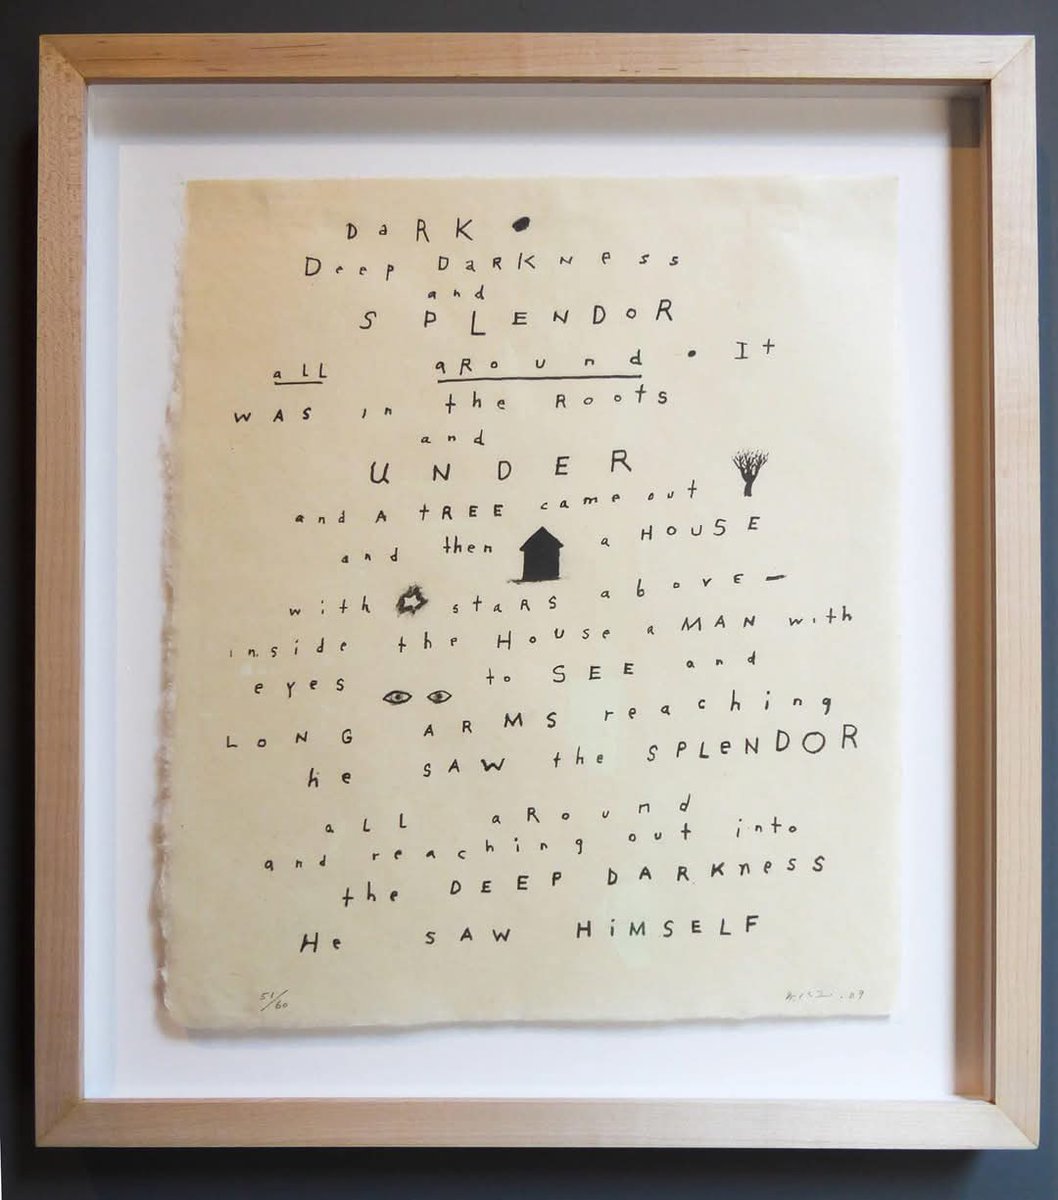 DaRK
Deep DaRKNess
and
SPLENDoR
aLL aRound . It
WAS in the RootS
and
UNDER
and A tREE came out
and then a HOUSE
with staRS aboVE—
inside the House a MAN with
eyes to SEE and
LoNG ARMS reaching
he SAW the SPLeNDOR
aLL aRound
and reaching out into
the DEEP DARKness
He SAW HiMSELF
51/60
.09